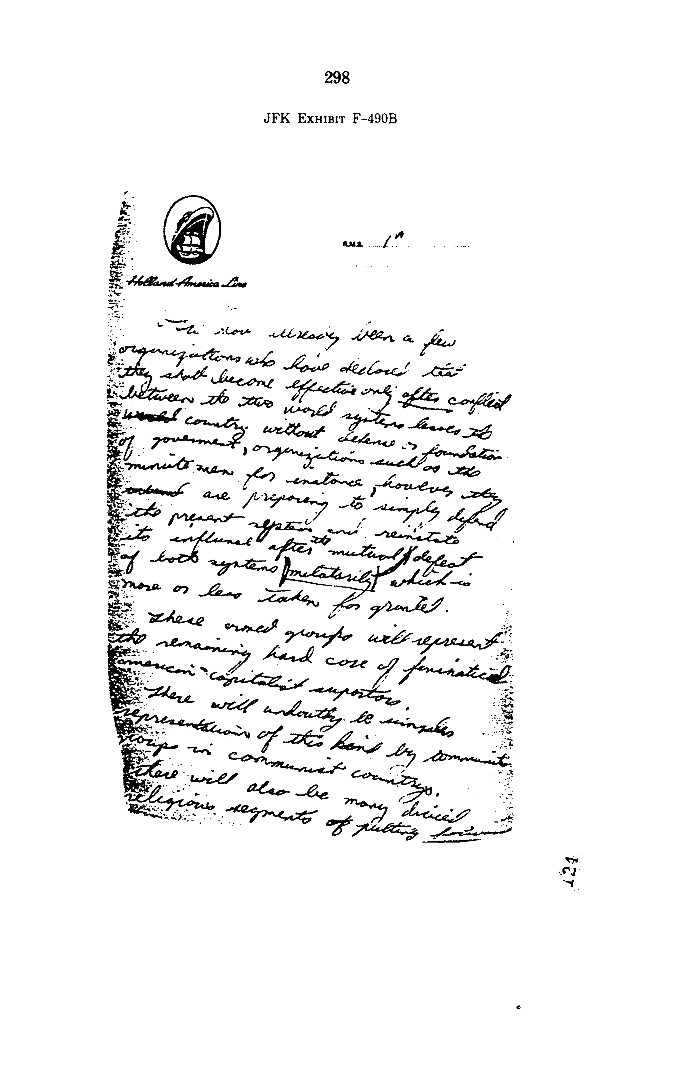 298
JFK EXHIBIT F-490B
R.M.S. 1A
Holland-America Line
now already been a few
organizations who have declared that
they shall become effective only after conflict
between the two world systems leaves the
world country without defense or foundation
of goverment, organizations such as the
minute men for instance, however they
are preparing to simply defend
the present system and reinstate
its influence after the mutual defeat
of both systems militarily which is
more or less taken for granted.
These armed groups will represent
the remaining hard core of fanatical
american-capitalist supportors.
There will undoubtly be similar
representation of this kind by communist
groups in communist countrys.
there will also be many
religious segments of
124